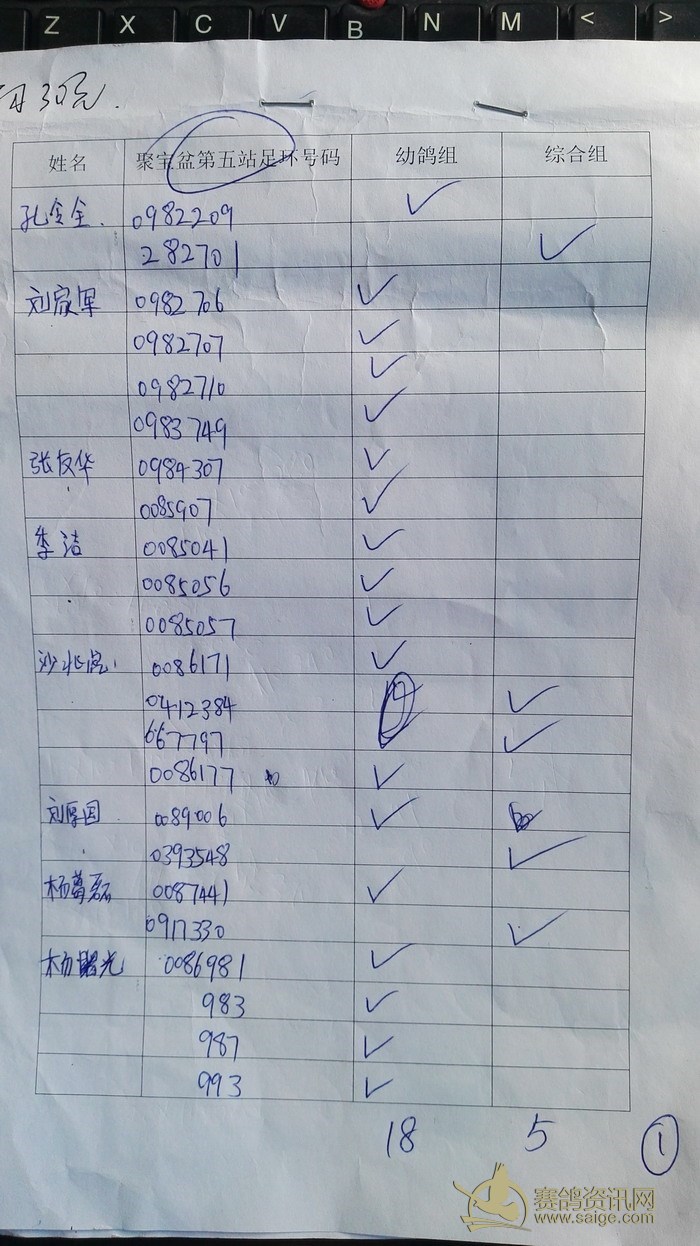 Z X C V B N M < >
月30元.
姓名 聚宝盆第五站足环号码 幼鸽组 综合组
孔金全. 0982209 ✓
282701 ✓
刘家军 0982706 ✓
0982707 ✓
0982710 ✓
0983749 ✓
张友华 0984307 ✓
0085907 ✓
李洁 0085041 ✓
0085056 ✓
0085057 ✓
沙兆 0086171 ✓
0412384 ✓
667797 ✓
0086177 ✓
刘厚因 0089006 ✓
0393548 ✓
杨 磊 0087441 ✓
0917330 ✓
杨曙光 0086981 ✓
983 ✓
987 ✓
993 ✓
18 5 ①
赛鸽资讯网
www.saige.com